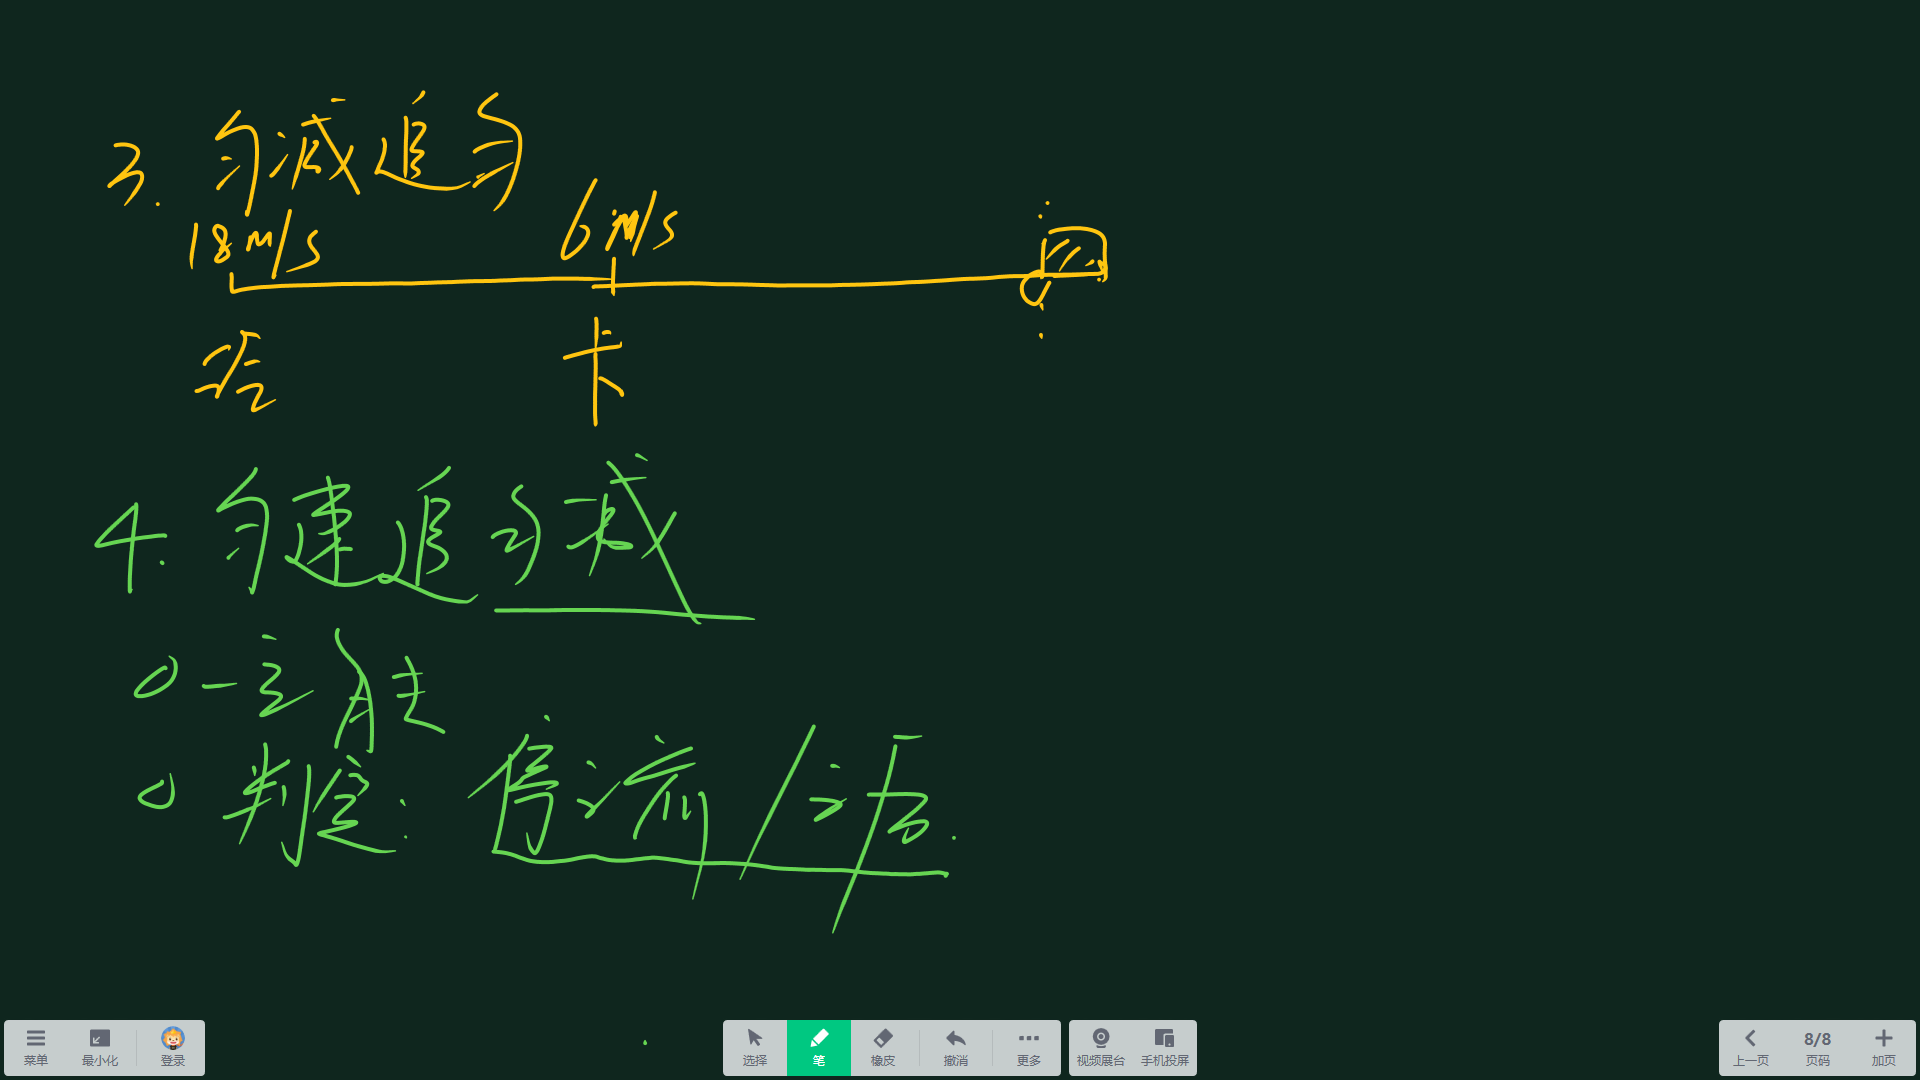 3. 匀减追匀
18m/s 6m/s
卡
4. 匀速追匀减
一定能
判定: 停流/
菜单 最小化 登录 选择 笔 橡皮 撤消 更多 视频展台 手机投屏 上一页 8/8 页码 加页